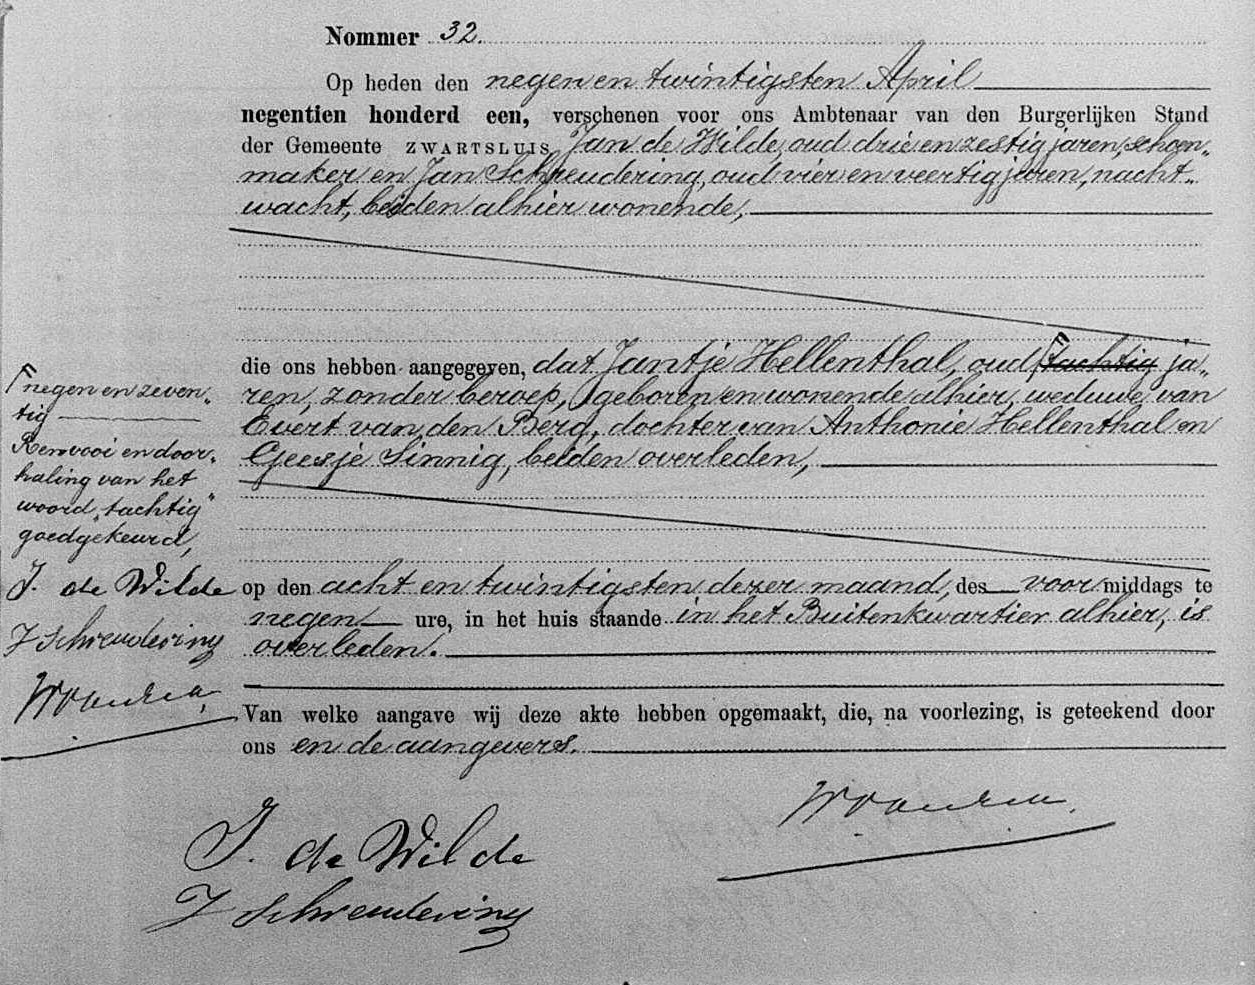 Nommer 32.
Op heden den negen en twintigsten April
negentien honderd een, verschenen voor ons Ambtenaar van den Burgerlijken Stand
der Gemeente ZWARTSLUIS Jan de Wilde, oud drie en zestig jaren, schoen„
maker en Jan Schreudering, oud vier en veertig jaren, nacht„
wacht, beiden alhier wonende,
die ons hebben aangegeven, dat Jantje Hellenthal, oud tachtig ja„
ren, zonder beroep, geboren en wonende alhier, weduwe van
Evert van den Berg, dochter van Anthonie Hellenthal en
Geesje Sinnig, beiden overleden,
op den acht en twintigsten dezer maand, des voor middags te
negen ure, in het huis staande in het Buitenkwartier alhier, is
overleden.
Van welke aangave wij deze akte hebben opgemaakt, die, na voorlezing, is geteekend door
ons en de aangevers.
negen en zeven„
tig
Renvooi en door„
haling van het
woord „tachtig"
goedgekeurd,
J. de Wilde
J Schreudering
J. de Wilde
J Schreudering